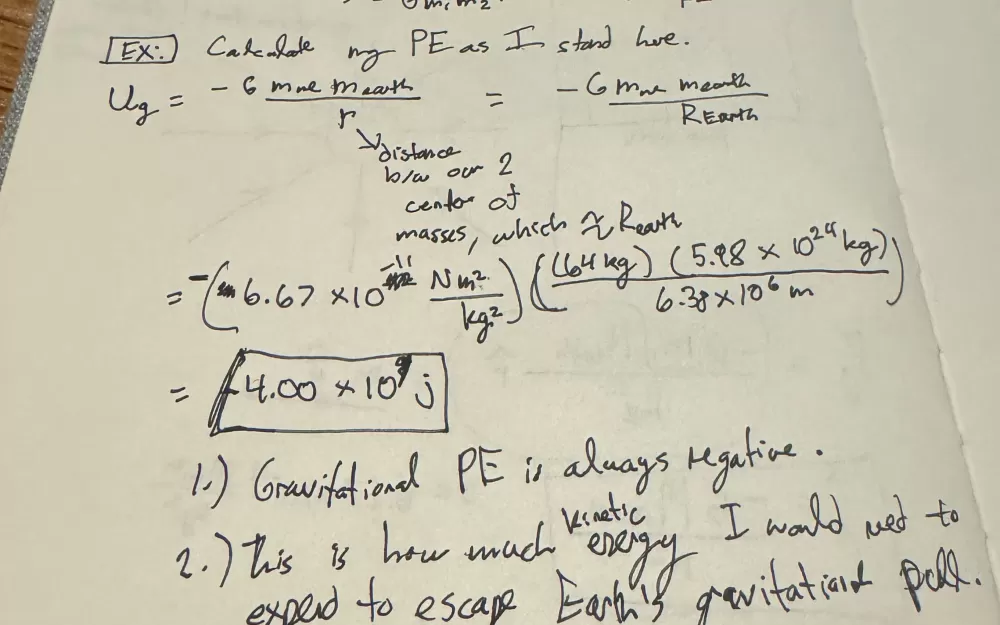 G m₁ m₂
EX: Calculate my PE as I stand here.
Ug = - G m me m earth / r = - G m me m earth / R Earth
distance
b/w our 2
center of
masses, which ≈ R earth
= -(6.67 × 10⁻¹¹ N m² / kg²) ((64 kg) (5.98 × 10²⁴ kg) / 6.38 × 10⁶ m)
= -4.00 × 10⁹ j
1.) Gravitational PE is always negative.
2.) This is how much kinetic energy I would need to
expend to escape Earth's gravitational pull.